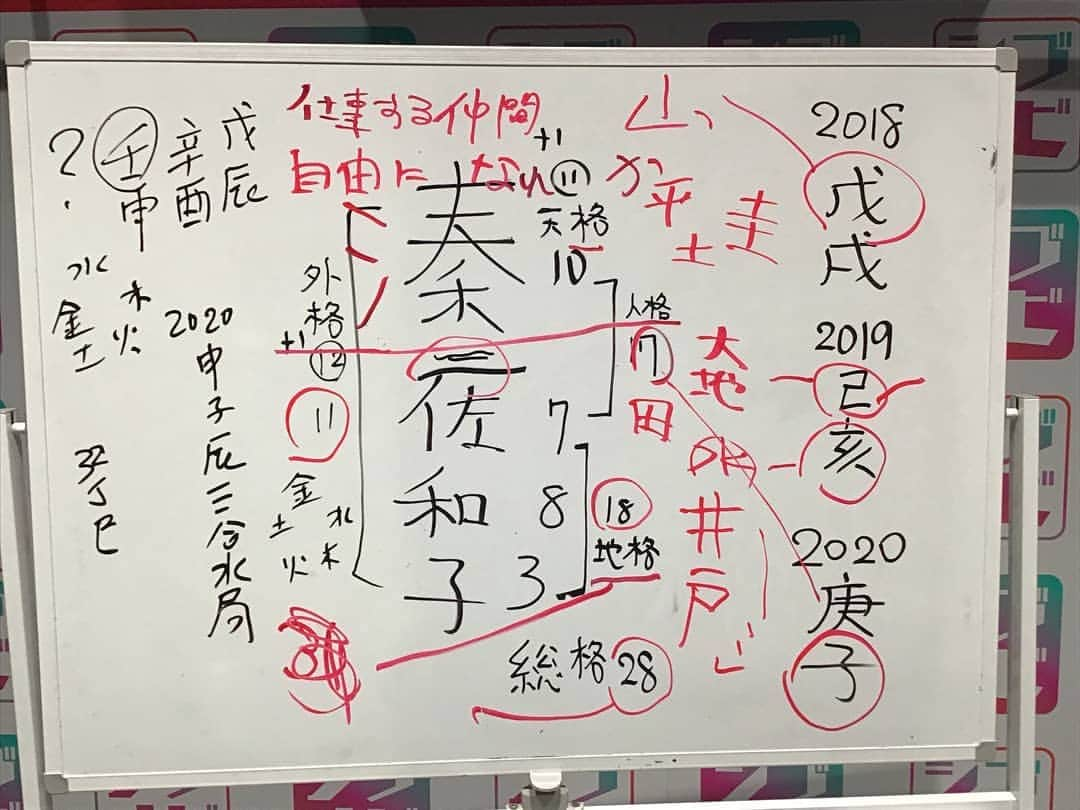 仕事する仲間
自由になれ
+1
⑪
?
壬申
辛酉
戊辰
水
金 木
土 火
2020
申子辰三合水局
辛丁巳
外格
+1
⑫
11
金 水
土 木
火
秦
佐
和
子
天格
10
7
8
3
人格
17
18
地格
総格 28
山、
か
平 圭
土
大地
田
井戸
2018
戊戌
2019
己亥
2020
庚子